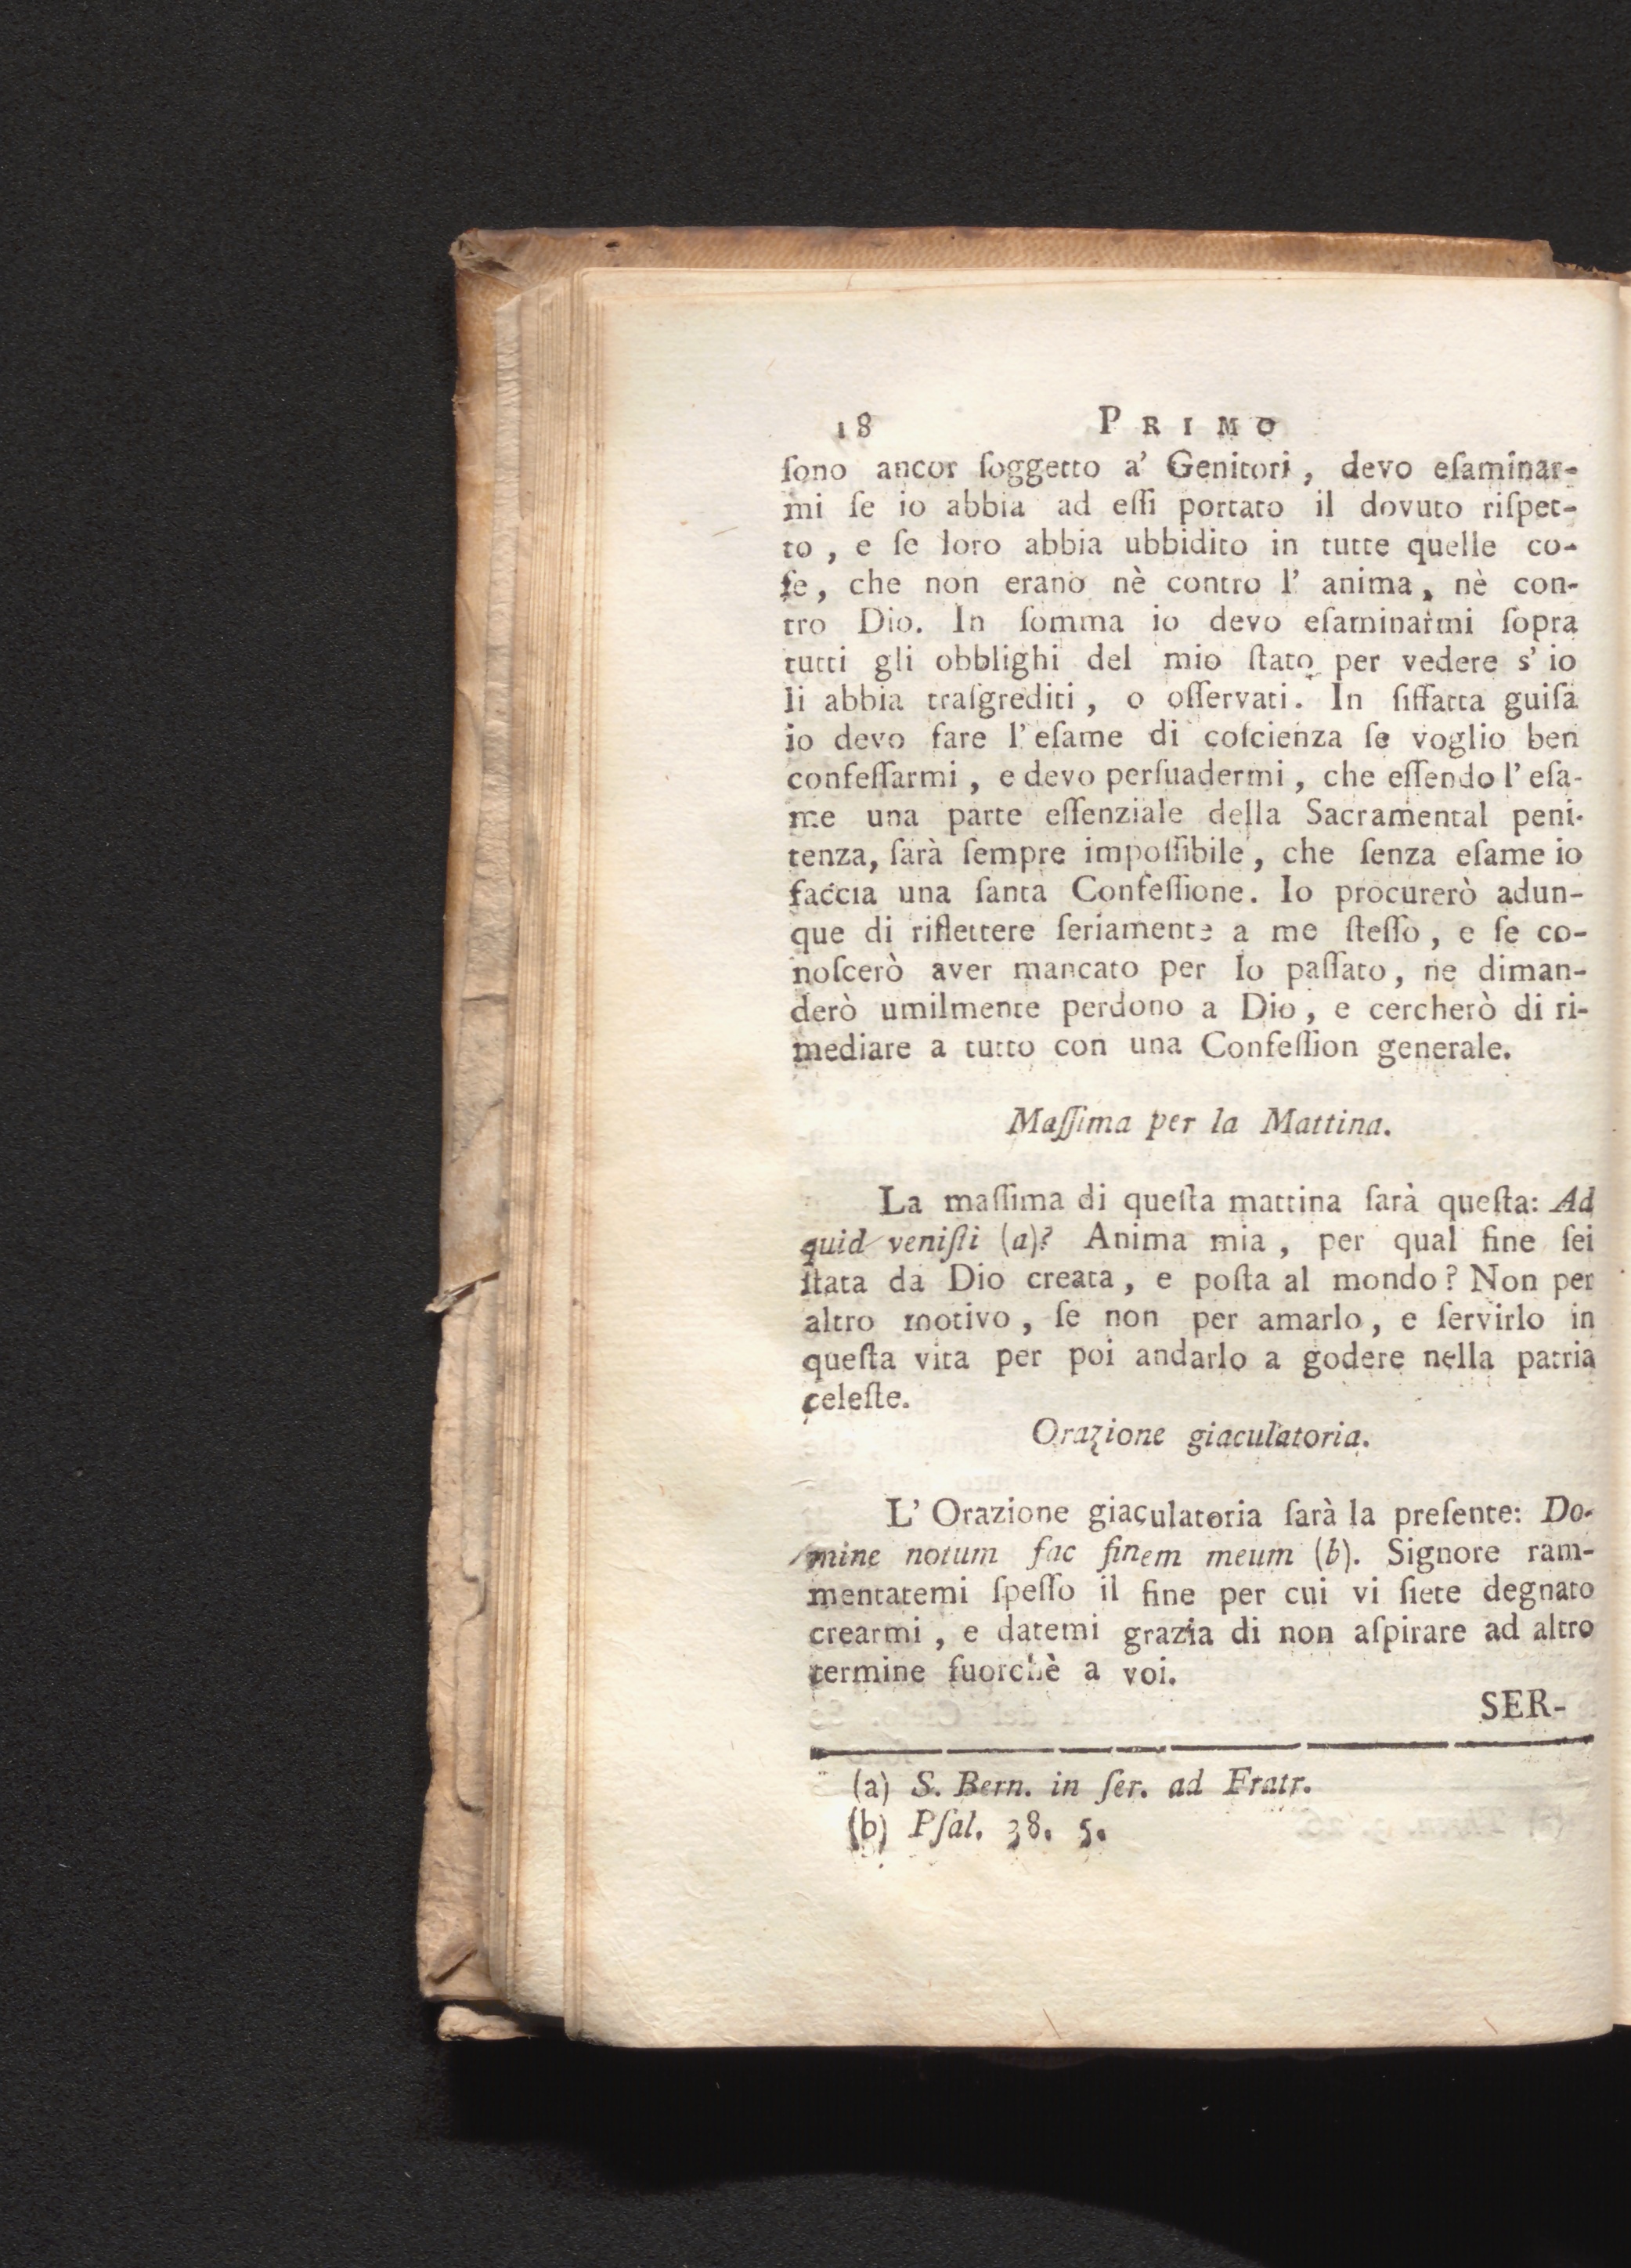 18 PRIMO
ſono ancor ſoggetto a' Genitori, devo eſaminar-
mi ſe io abbia ad eſſi portato il dovuto riſpet-
to, e ſe loro abbia ubbidito in tutte quelle co-
ſe, che non erano nè contro l' anima, nè con-
tro Dio. In ſomma io devo eſaminarmi ſopra
tutti gli obblighi del mio ſtato per vedere s' io
li abbia traſgrediti, o oſſervati. In ſiffatta guiſa
io devo fare l' eſame di coſcienza ſe voglio ben
confeſſarmi, e devo perſuadermi, che eſſendo l' eſa-
me una parte eſſenziale della Sacramental peni-
tenza, ſarà ſempre impoſſibile, che ſenza eſame io
faccia una ſanta Confeſſione. Io procurerò adun-
que di riflettere ſeriamente a me ſteſſo, e ſe co-
noſcerò aver mancato per lo paſſato, ne diman-
derò umilmente perdono a Dio, e cercherò di ri-
mediare a tutto con una Confeſſion generale.
Maſſima per la Mattina.
La maſſima di queſta mattina ſarà queſta: Ad
quid veniſti (a)? Anima mia, per qual fine ſei
ſtata da Dio creata, e poſta al mondo? Non per
altro motivo, ſe non per amarlo, e ſervirlo in
queſta vita per poi andarlo a godere nella patria
celeſte.
Orazione giaculatoria.
L' Orazione giaculatoria ſarà la preſente: Do-
mine notum fac finem meum (b). Signore ram-
mentatemi ſpeſſo il fine per cui vi ſiete degnato
crearmi, e datemi grazia di non aſpirare ad altro
termine fuorchè a voi.
SER-
(a) S. Bern. in ſer. ad Fratr.
(b) Pſal. 38. 5.